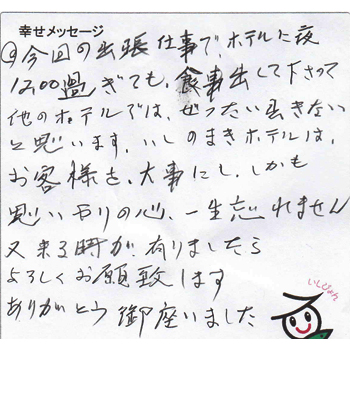 幸せメッセージ
今回の出張仕事で、ホテルに夜
1200過ぎても、食事出して下さって
他のホテルでは、ぜったい出きない
と思います、いしのまきホテルは、
お客様を、大事にし、しかも
思いやりの心、一生忘れません
又来る時が、有りましたら
よろしくお願致します
ありがとう御座いました
いしぴょん